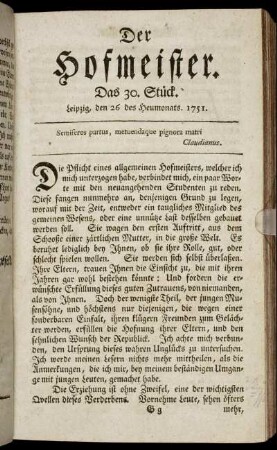 Der
Hofmeister.
Das 30. Stück.
Leipzig, den 26 des Heumonats. 1751.
Semiferos partus, metuendaque pignora matri
Claudianus.
Die Pflicht eines allgemeinen Hofmeisters, welcher ich
mich unterzogen habe, verbindet mich, ein paar Wor-
te mit den neuangehenden Studenten zu reden.
Diese fangen nunmehro an, denjenigen Grund zu legen,
worauf mit der Zeit, entweder ein taugliches Mitglied des
gemeinen Wesens, oder eine unnütze Last desselben gebauet
werden soll. Sie wagen den ersten Auftritt, aus dem
Schooße einer zärtlichen Mutter, in die große Welt. Es
beruhet lediglich bey Ihnen, ob sie ihre Rolle, gut, oder
schlecht spielen wollen. Sie werden sich selbst überlaßen.
Ihre Eltern, trauen Ihnen die Einsicht zu, die mit ihren
Jahren gar wohl bestehen könnte; Und fordern die er-
wünschte Erfüllung dieses guten Zutrauens, von niemanden,
als von Ihnen. Doch der wenigste Theil, der jungen Mu-
sensöhne, und höchstens nur diejenigen, die wegen einer
sonderbaren Einfalt, ihren klügern Freunden zum Geläch-
ter werden, erfüllen die Hofnung ihrer Eltern, und den
sehnlichen Wunsch der Republick. Ich achte mich verbun-
den, den Ursprung dieses wahren Unglücks zu untersuchen.
Ich werde meinen Lesern nichts mehr mittheilen, als die
Anmerkungen, die ich mir, bey meinem beständigen Umgan-
ge mit jungen Leuten, gemacht habe.
Die Erziehung ist ohne Zweifel, eine der wichtigsten
Qvellen dieses Verderbens. Vornehme Leute, sehen öfters
G g
mehr,